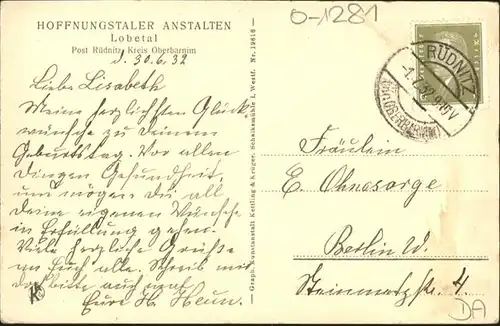 HOFFNUNGSTALER ANSTALTEN
Lobetal
Post Rüdnitz Kreis Oberbarnim
d. 30.6.32
Liebe Lisabeth
Meine herzlichsten Glück
wünsche zu Deinem
Geburtstag. Vor allen
Dingen Gesundheit,
und mögen die all
Deine eigenen Wünsche
in Erfüllung gehen.
Viele herzliche Grüße
an Euch alle. Schreib mir
das bitte auch
Eure H. Heun.
Graph. Kunstanstalt Kettling & Krüger, Schalksmühle i. Westf. Nr. 19616
0-1281
RÜDNITZ
-1.7.32.8-10V
Fräulein
E. Ohnesorge
Berlin W.
Steinmetzstr. 4.
DA